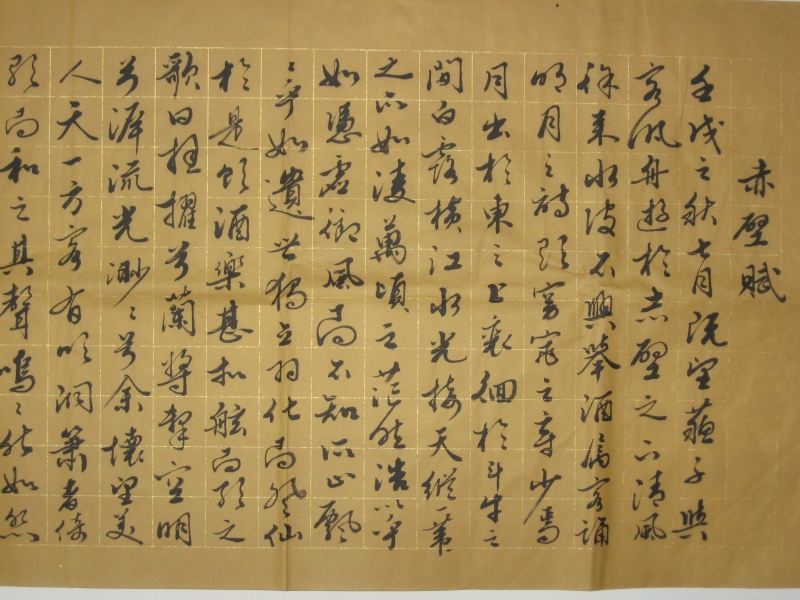 赤壁賦
壬戌之秋七月既望蘇子與
客汎舟遊於赤壁之下清風
徐來水波不興舉酒屬客誦
明月之詩歌窈窕之章少焉
月出於東之上裵徊於斗牛之
間白露橫江水光接天縱一葦
之所如凌萬頃之茫然浩〻乎
如憑虛御風而不知所止飄
〻乎如遺世獨立羽化而登仙
於是飲酒樂甚扣舷而歌之
歌曰桂擢兮蘭槳擊空明
兮泝流光渺〻兮余懷望美
人天一方客有吹洞簫者倚
歌而和之其聲嗚〻然如怨